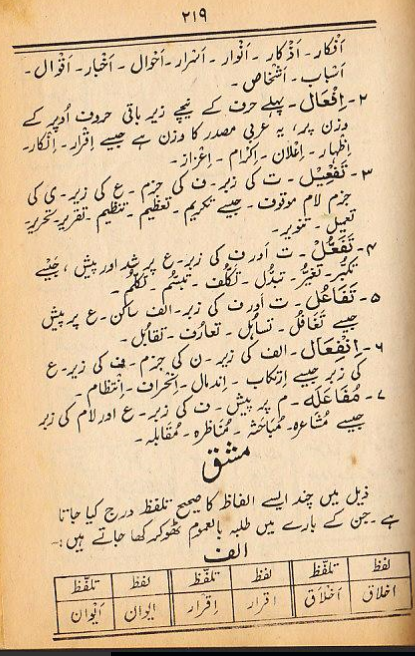 ۲۱۹
اَفْکار۔ اَذْکار۔ اَنْوار۔ اَسْرار۔ اَحْوال۔ اَخْبار۔ اَقْوال۔
اَسْباب۔ اَشْخاص۔
۲۔ اِفْعَال۔ پہلے حرف کے نیچے زیر باقی حروف اُوپر کے
وزن پر، یہ عربی مصدر کا وزن ہے جیسے اِقْرار۔ اِنْکار۔
اِظہار۔ اِعْلان۔ اِکْرام۔ اِعْزاز۔
۳۔ تَفْعِیْل۔ ت کی زبر۔ ف کی جزم۔ ع کی زیر۔ ی کی
جزم لام موقوف۔ جیسے تکریم۔ تعظیم۔ تنظیم۔ تقریر۔ تحریر۔
تعمیل۔ تنویر۔
۴۔ تَفَعُّلْ۔ ت اَور ف کی زبر۔ ع پر شد اور پیش، جَیْسے
تکبُّر۔ تغیُّر۔ تبدُّل۔ تکلُّف۔ تبسُّم۔ تکلُّم۔
۵۔ تَفَاعُل۔ ت اَور ف کی زبر۔ الف ساکن۔ ع پر پیش
جیسے تَغَافُل۔ تساہُل۔ تعارُف۔ تقابُل۔
۶۔ اِنْفِعَال۔ الف کی زیر۔ ن کی جزم۔ ف کی زیر۔ ع
کی زبر جیسے اِرتکاب۔ اِندمال۔ اِنحراف۔ اِنْتظام۔
۷۔ مُفَاعَلَہ۔ م پر پیش۔ ف کی زبر۔ ع اور لام کی زبر
جیسے مُشاعرہ۔ مُباحثہ۔ مُناظرہ۔ مُقابلہ۔
مشق
ذیل میں چند ایسے الفاظ کا صحیح تلفظ درج کیا جاتا
ہے۔ جن کے بارے میں طلبہ بالعموم ٹھوکر کھا جاتے ہیں:-
الف
لفظ تلفّظ لفظ تلفّظ لفظ تلفّظ
اخلاق اَخْلَاق اقرار اِقْرار ایوان اَیْوان